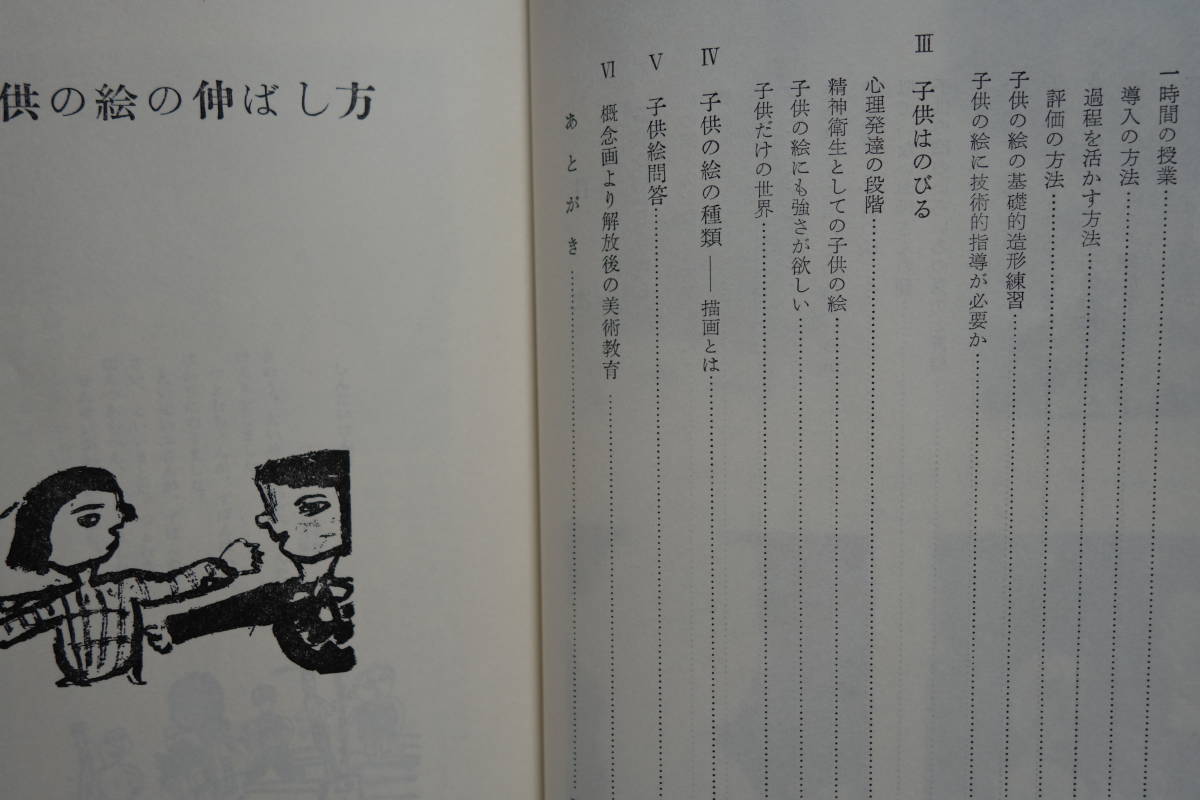 一時間の授業
導入の方法
過程を活かす方法
評価の方法
子供の絵の基礎的造形練習
子供の絵に技術的指導が必要か
Ⅲ 子供はのびる
心理発達の段階
精神衛生としての子供の絵
子供の絵にも強さが欲しい
子供だけの世界
Ⅳ 子供の絵の種類 ――描画とは
Ⅴ 子供絵問答
Ⅵ 概念画より解放後の美術教育
あとがき
供の絵の伸ばし方